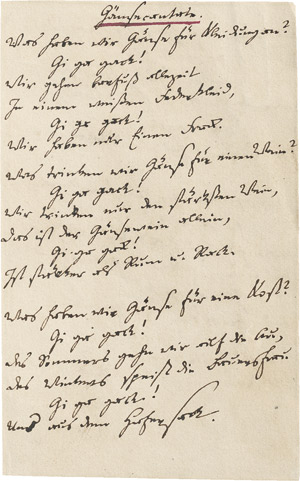 Gänsecantate.
Was haben wir Gänse für Kleidung an?
Gi ga gack!
Wir gehen barfuß allzeit
In einem weißen Federkleid,
Gi ga gack!
Wir haben nur Einen Frack.
Was trinken wir Gänse für einen Wein?
Gi ga gack!
Wir trinken nur den stärksten Wein,
Das ist der Gänsewein allein,
Gi ga gack!
Ist stärker als Rum u. Rack.
Was haben wir Gänse für eine Kost?
Gi ga gack!
Des Sommers gehn wir auf die Au,
Des Winters speist die Bauersfrau
Gi ga gack!
Uns aus dem Hafersack.